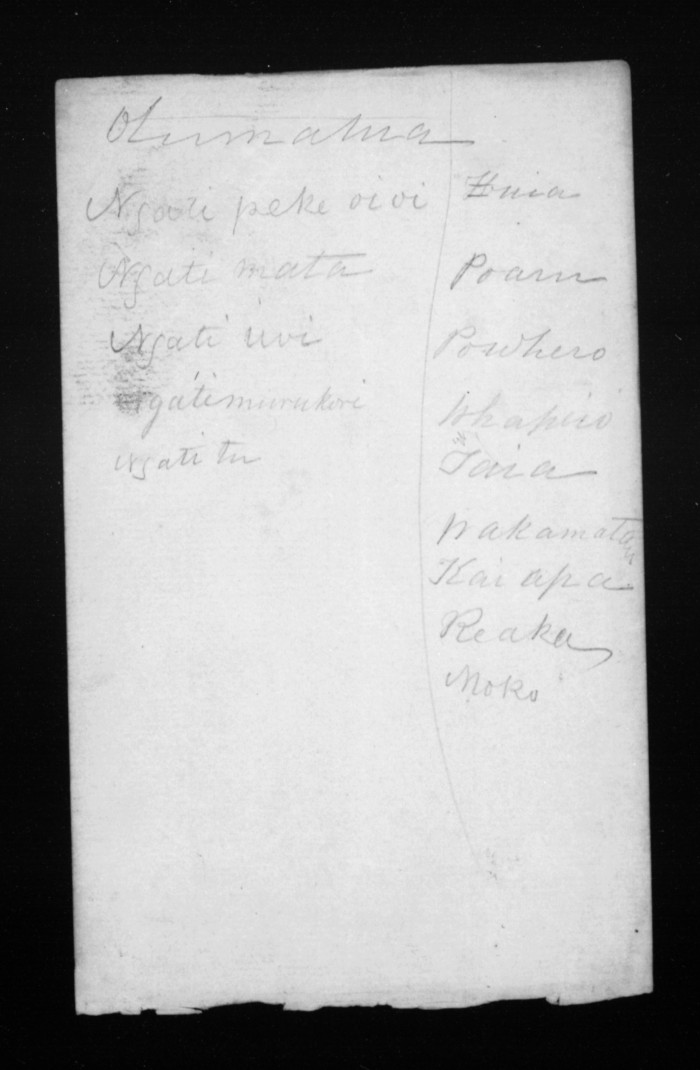 Otumatua
Ngati peke oivi
Ngati mata
Ngati uvi
Ngatimurukori
Ngati tu
Huia
Poaru
Powhero
Whapiro
Taia
Wakamatau
Kai apa
Reaka
Moko